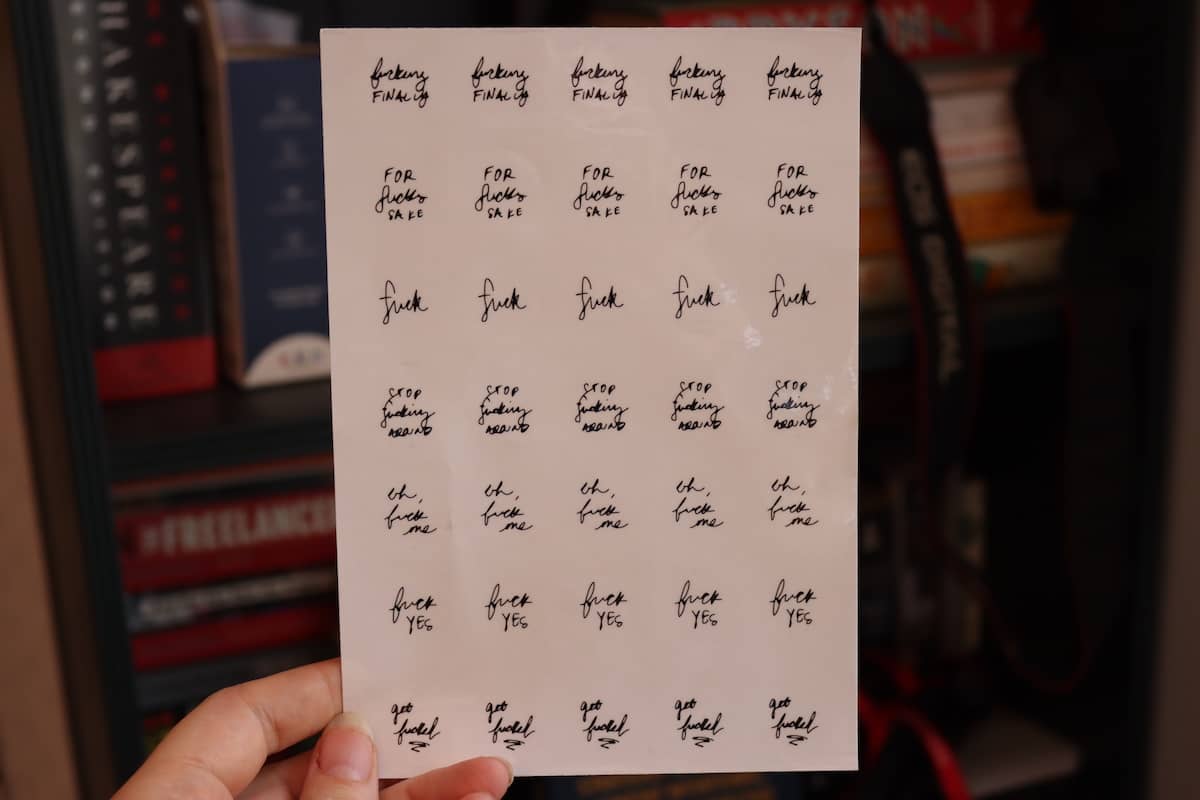 SHAKESPEARE
fucking fucking fucking fucking fucking
FINALLY FINALLY FINALLY FINALLY FINALLY
FOR FOR FOR FOR FOR
fucks fucks fucks fucks fucks
SAKE SAKE SAKE SAKE SAKE
fuck fuck fuck fuck fuck
STOP STOP STOP STOP STOP
fucking fucking fucking fucking fucking
AROUND AROUND AROUND AROUND AROUND
oh, oh, oh, oh, oh,
fuck fuck fuck fuck fuck
me me me me me
fuck fuck fuck fuck fuck
YES YES YES YES YES
get get get get get
fucked fucked fucked fucked fucked
EOS DIGITAL